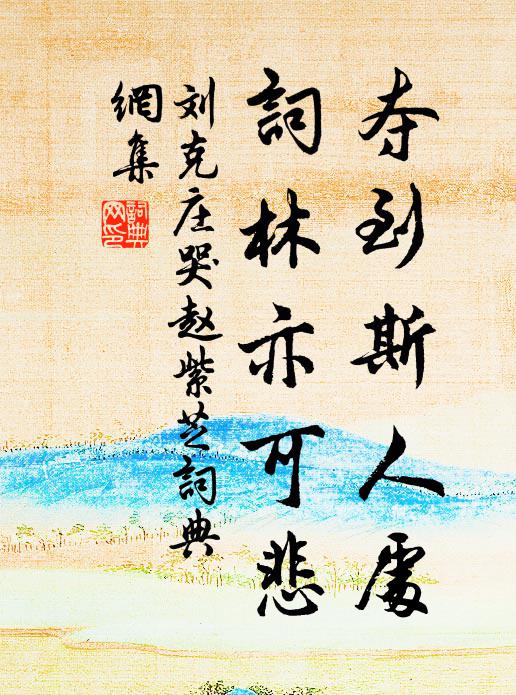 夺到斯人處
詞林亦可悲
刘克庄哭赵紫芝詞典
網集
詞典
网印